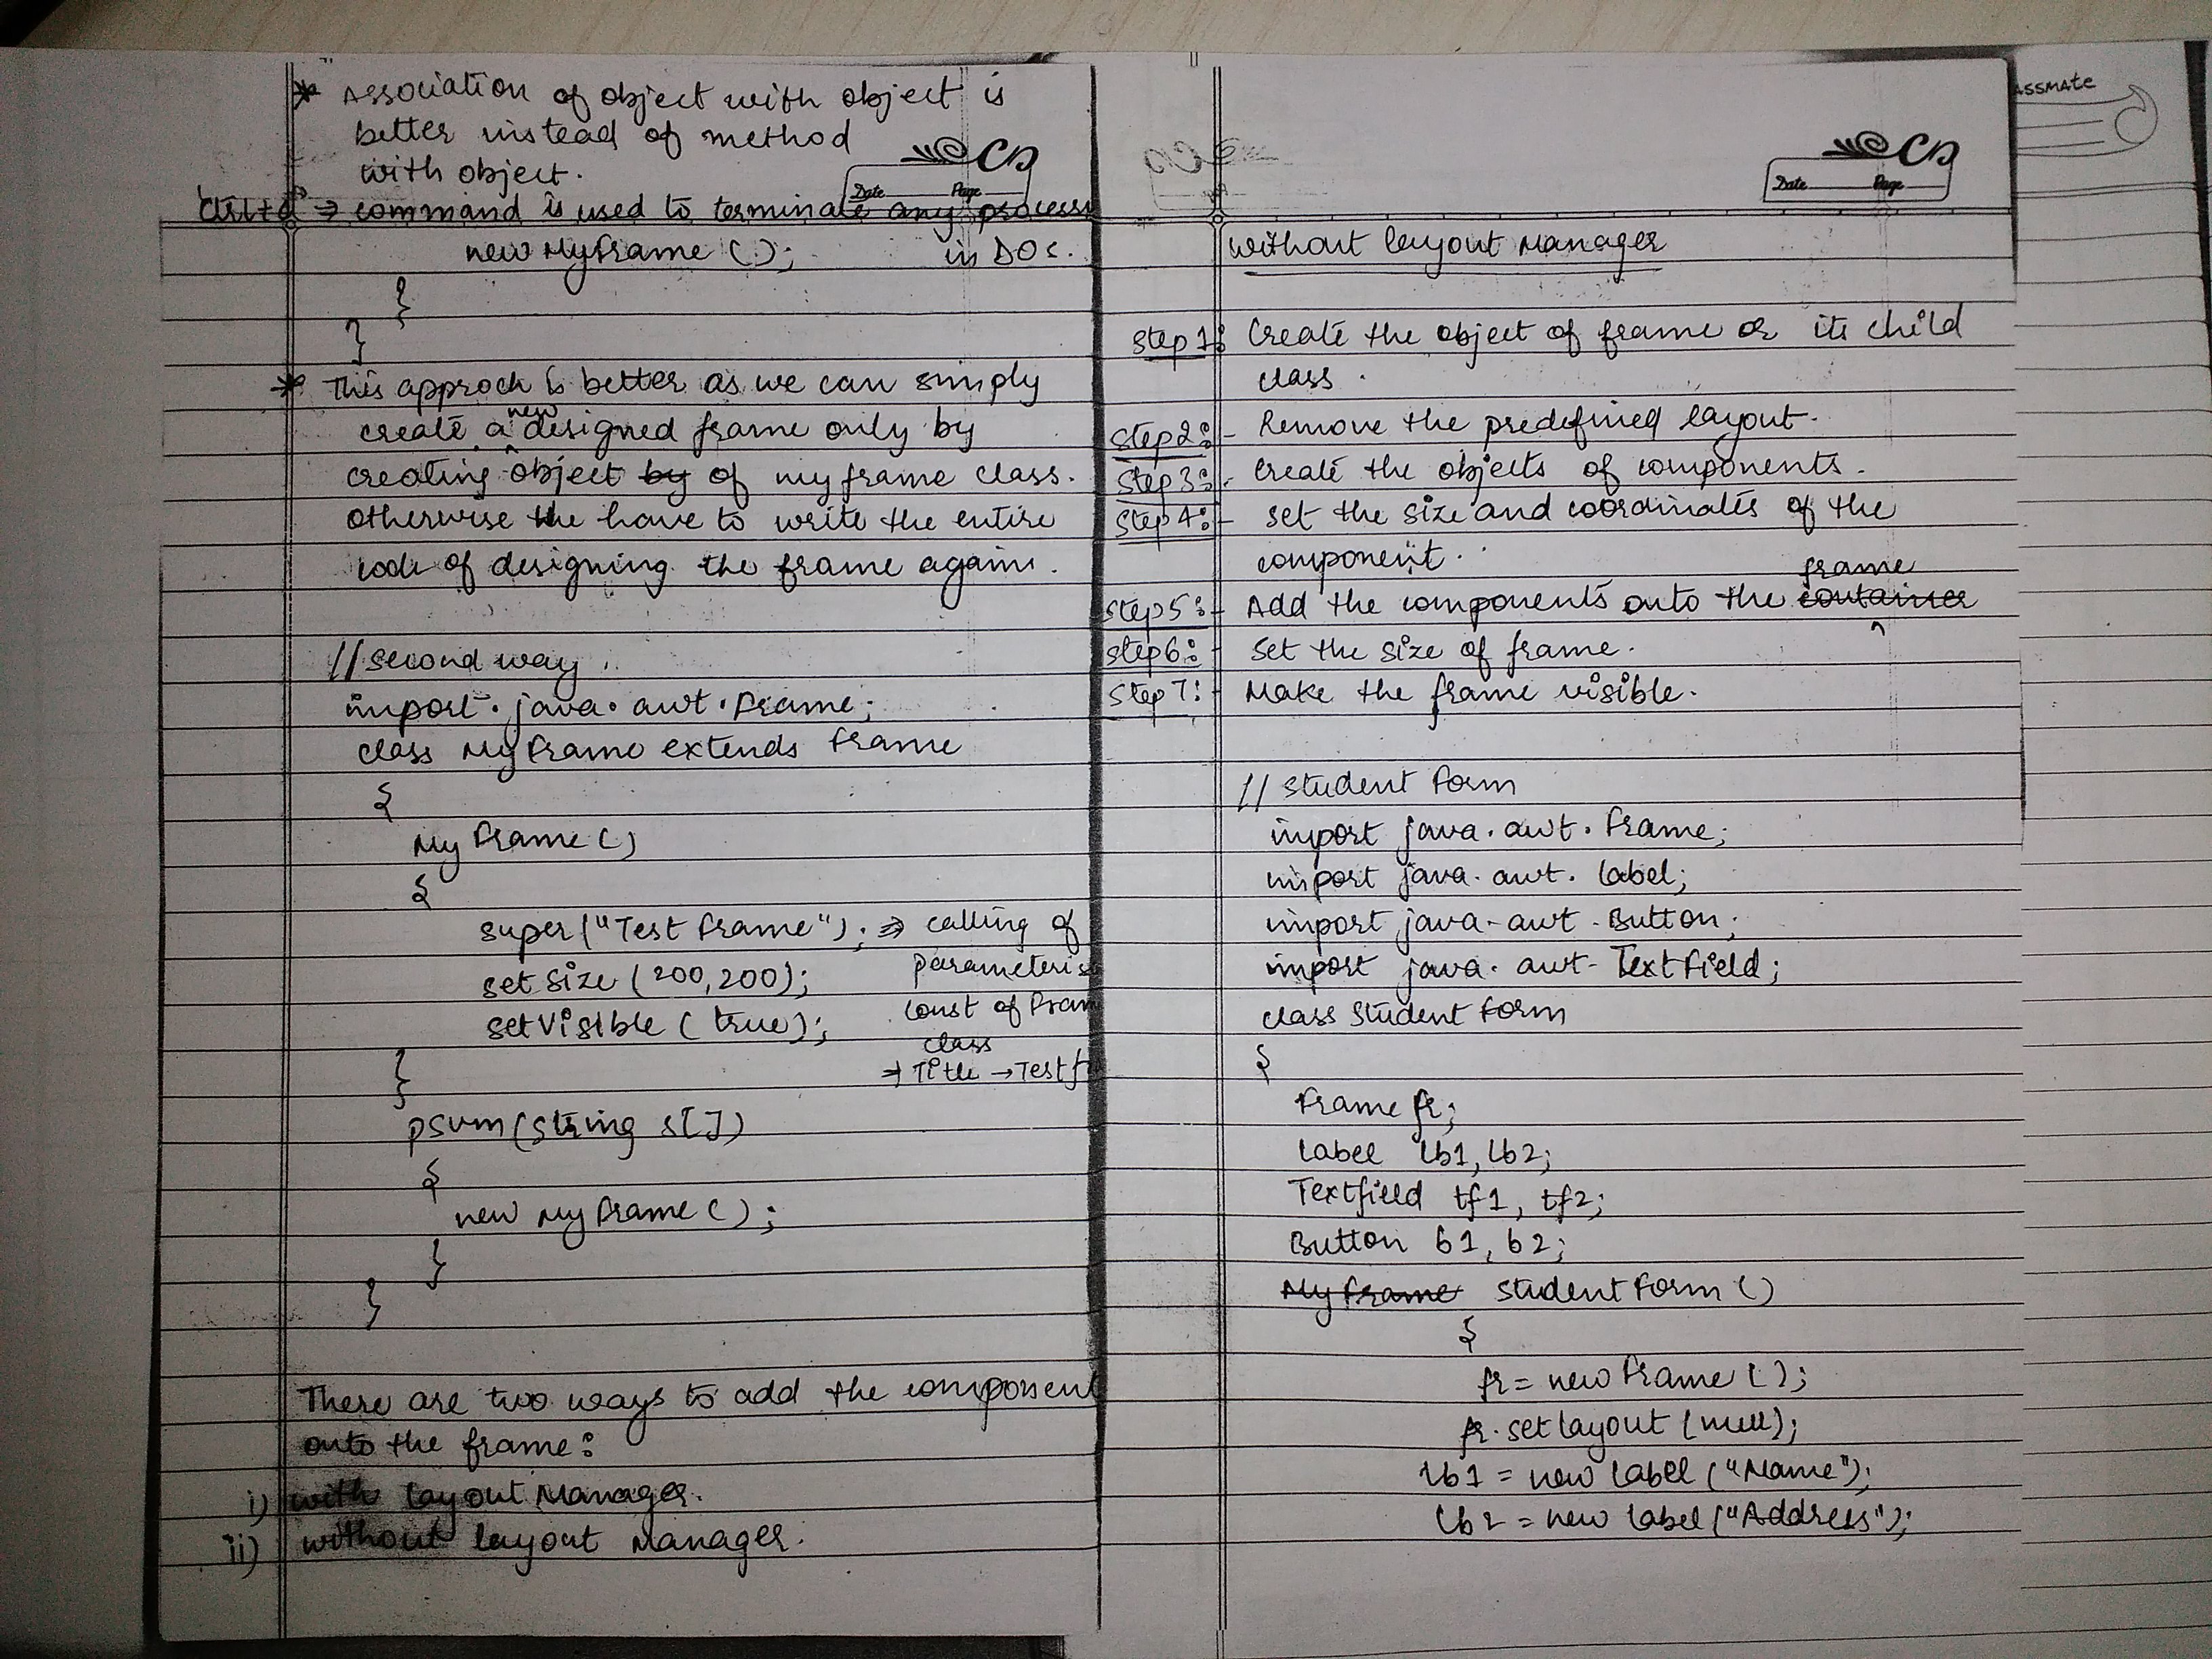 * Association of object with object is
better instead of method
with object.
Date Page
"Ctrl+c" ⇒ command is used to terminate any process
in DOS.
new MyFrame ();
}
}
* This approch is better as we can simply
create a new designed frame only by
creating object by of my frame class.
otherwise the have to write the entire
code of designing the frame again.
// Second way.
import. java. awt. Frame;
class MyFrame extends Frame
{
MyFrame()
{
super("Test Frame"); ⇒ calling of
parameteris
setSize (200,200);
const of Fram
setVisible (true);
class
⇒ Title → Test f
}
psvm(string s[])
{
new MyFrame ();
}
}
There are two ways to add the component
onto the frame:
i) with layout Manager.
ii) without layout Manager.
CD
Date Page
without layout Manager
Step 1: Create the object of frame or its child
class.
Step 2:- Remove the predefined layout.
Step 3:- Create the objects of components.
Step 4:- set the size and coordinates of the
component.
frame
Step 5:- Add the components onto the container
Step 6:- Set the size of frame.
Step 7:- Make the frame visible.
// Student Form
import java. awt. Frame;
import java. awt. Label;
import java. awt. Button;
import java. awt. TextField;
class Student Form
{
Frame fr;
Label lb1, lb2;
Textfield tf1, tf2;
Button b1, b2;
MyFrame StudentForm ()
{
fr = new Frame ();
fr. setlayout (null);
lb1 = new Label ("Name");
lb2 = new Label ("Address");
ASSMATE